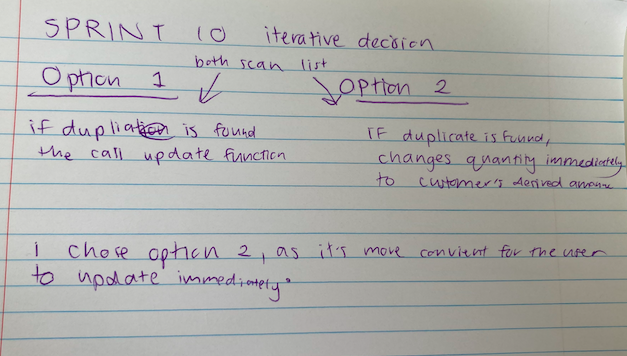 SPRINT 10 iterative decision
both scan list
Option 1
Option 2
if duplia is found
the call update function
IF duplicate is found,
changes quantity immediately
to customer's desired
I chose option 2, as it's more convient for the user
to update immediately.